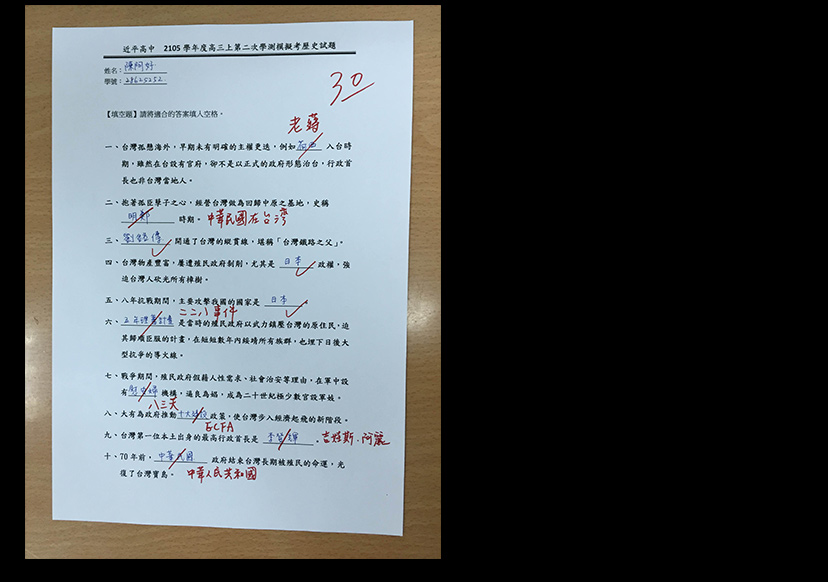 近平高中 2105 學年度高三上第二次學測模擬考歷史試題
姓名：陳阿好
學號：28625252
30
【填空題】請將適合的答案填入空格。
老蔣
一、台灣孤懸海外，早期未有明確的主權更迭，例如荷西入台時
期，雖然在台設有官府，卻不是以正式的政府形態治台，行政首
長也非台灣當地人。
二、抱著孤臣孽子之心，經營台灣做為回歸中原之基地，史稱
明鄭 時期。中華民國在台灣
三、劉銘傳 開通了台灣的縱貫線，堪稱「台灣鐵路之父」。
四、台灣物產豐富，屢遭殖民政府剝削，尤其是 日本 政權，強
迫台灣人砍光所有樟樹。
五、八年抗戰期間，主要攻擊我國的國家是 日本
二二八事件
六、五年理蕃計畫 是當時的殖民政府以武力鎮壓台灣的原住民，迫
其歸順臣服的計畫，在短短數年內綏靖所有族群，也埋下日後大
型抗爭的導火線。
七、戰爭期間，殖民政府假藉人性需求、社會治安等理由，在軍中設
有慰安婦 機構，逼良為娼，成為二十世紀極少數官設軍妓。
八三天
八、大有為政府推動十大建設政策，使台灣步入經濟起飛的新階段。
ECFA
九、台灣第一位本土出身的最高行政首長是 李登輝 。吉娃斯．阿麗
十、70 年前，中華民國 政府結束台灣長期被殖民的命運，光
復了台灣寶島。 中華人民共和國